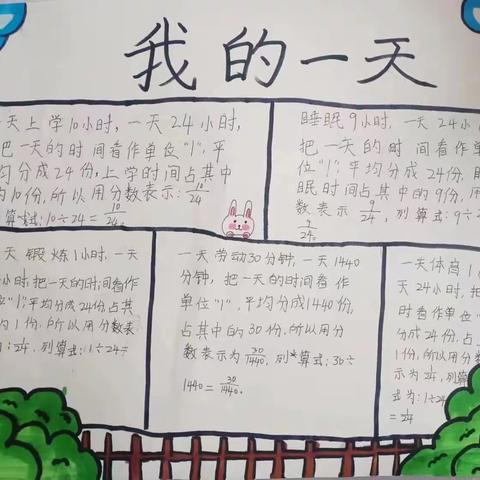 我的一天
天上学10小时,一天24小时,
把一天的时间看作单位"1",平
均分成24份,上学时间占其中
的10份,所以用分数表示:10/24
算式:10÷24=10/24。
睡眠9小时,一天24小
把一天的时间看作单
位"1",平均分成24份,睡
眠时间占其中的9份,用
数表示9/24,列算式:9÷2
9/24。
天锻炼1小时,一天
小时把一天的时间看作
位"1",平均分成24份,占其
为1份,所以用分数表
1/24,列算式:1÷24=
一天劳动30分钟,一天1440
分钟,把一天的时间看作
单位"1",平均分成1440份,
占其中的30份,所以用分
数表示为30/1440,列算式:30÷
1440=30/1440。
一天体育1
天24小时,把
时看作单位"
分成24份,占
1份,所以用分数
示为1/24,列算
式为:1÷2
=1/24